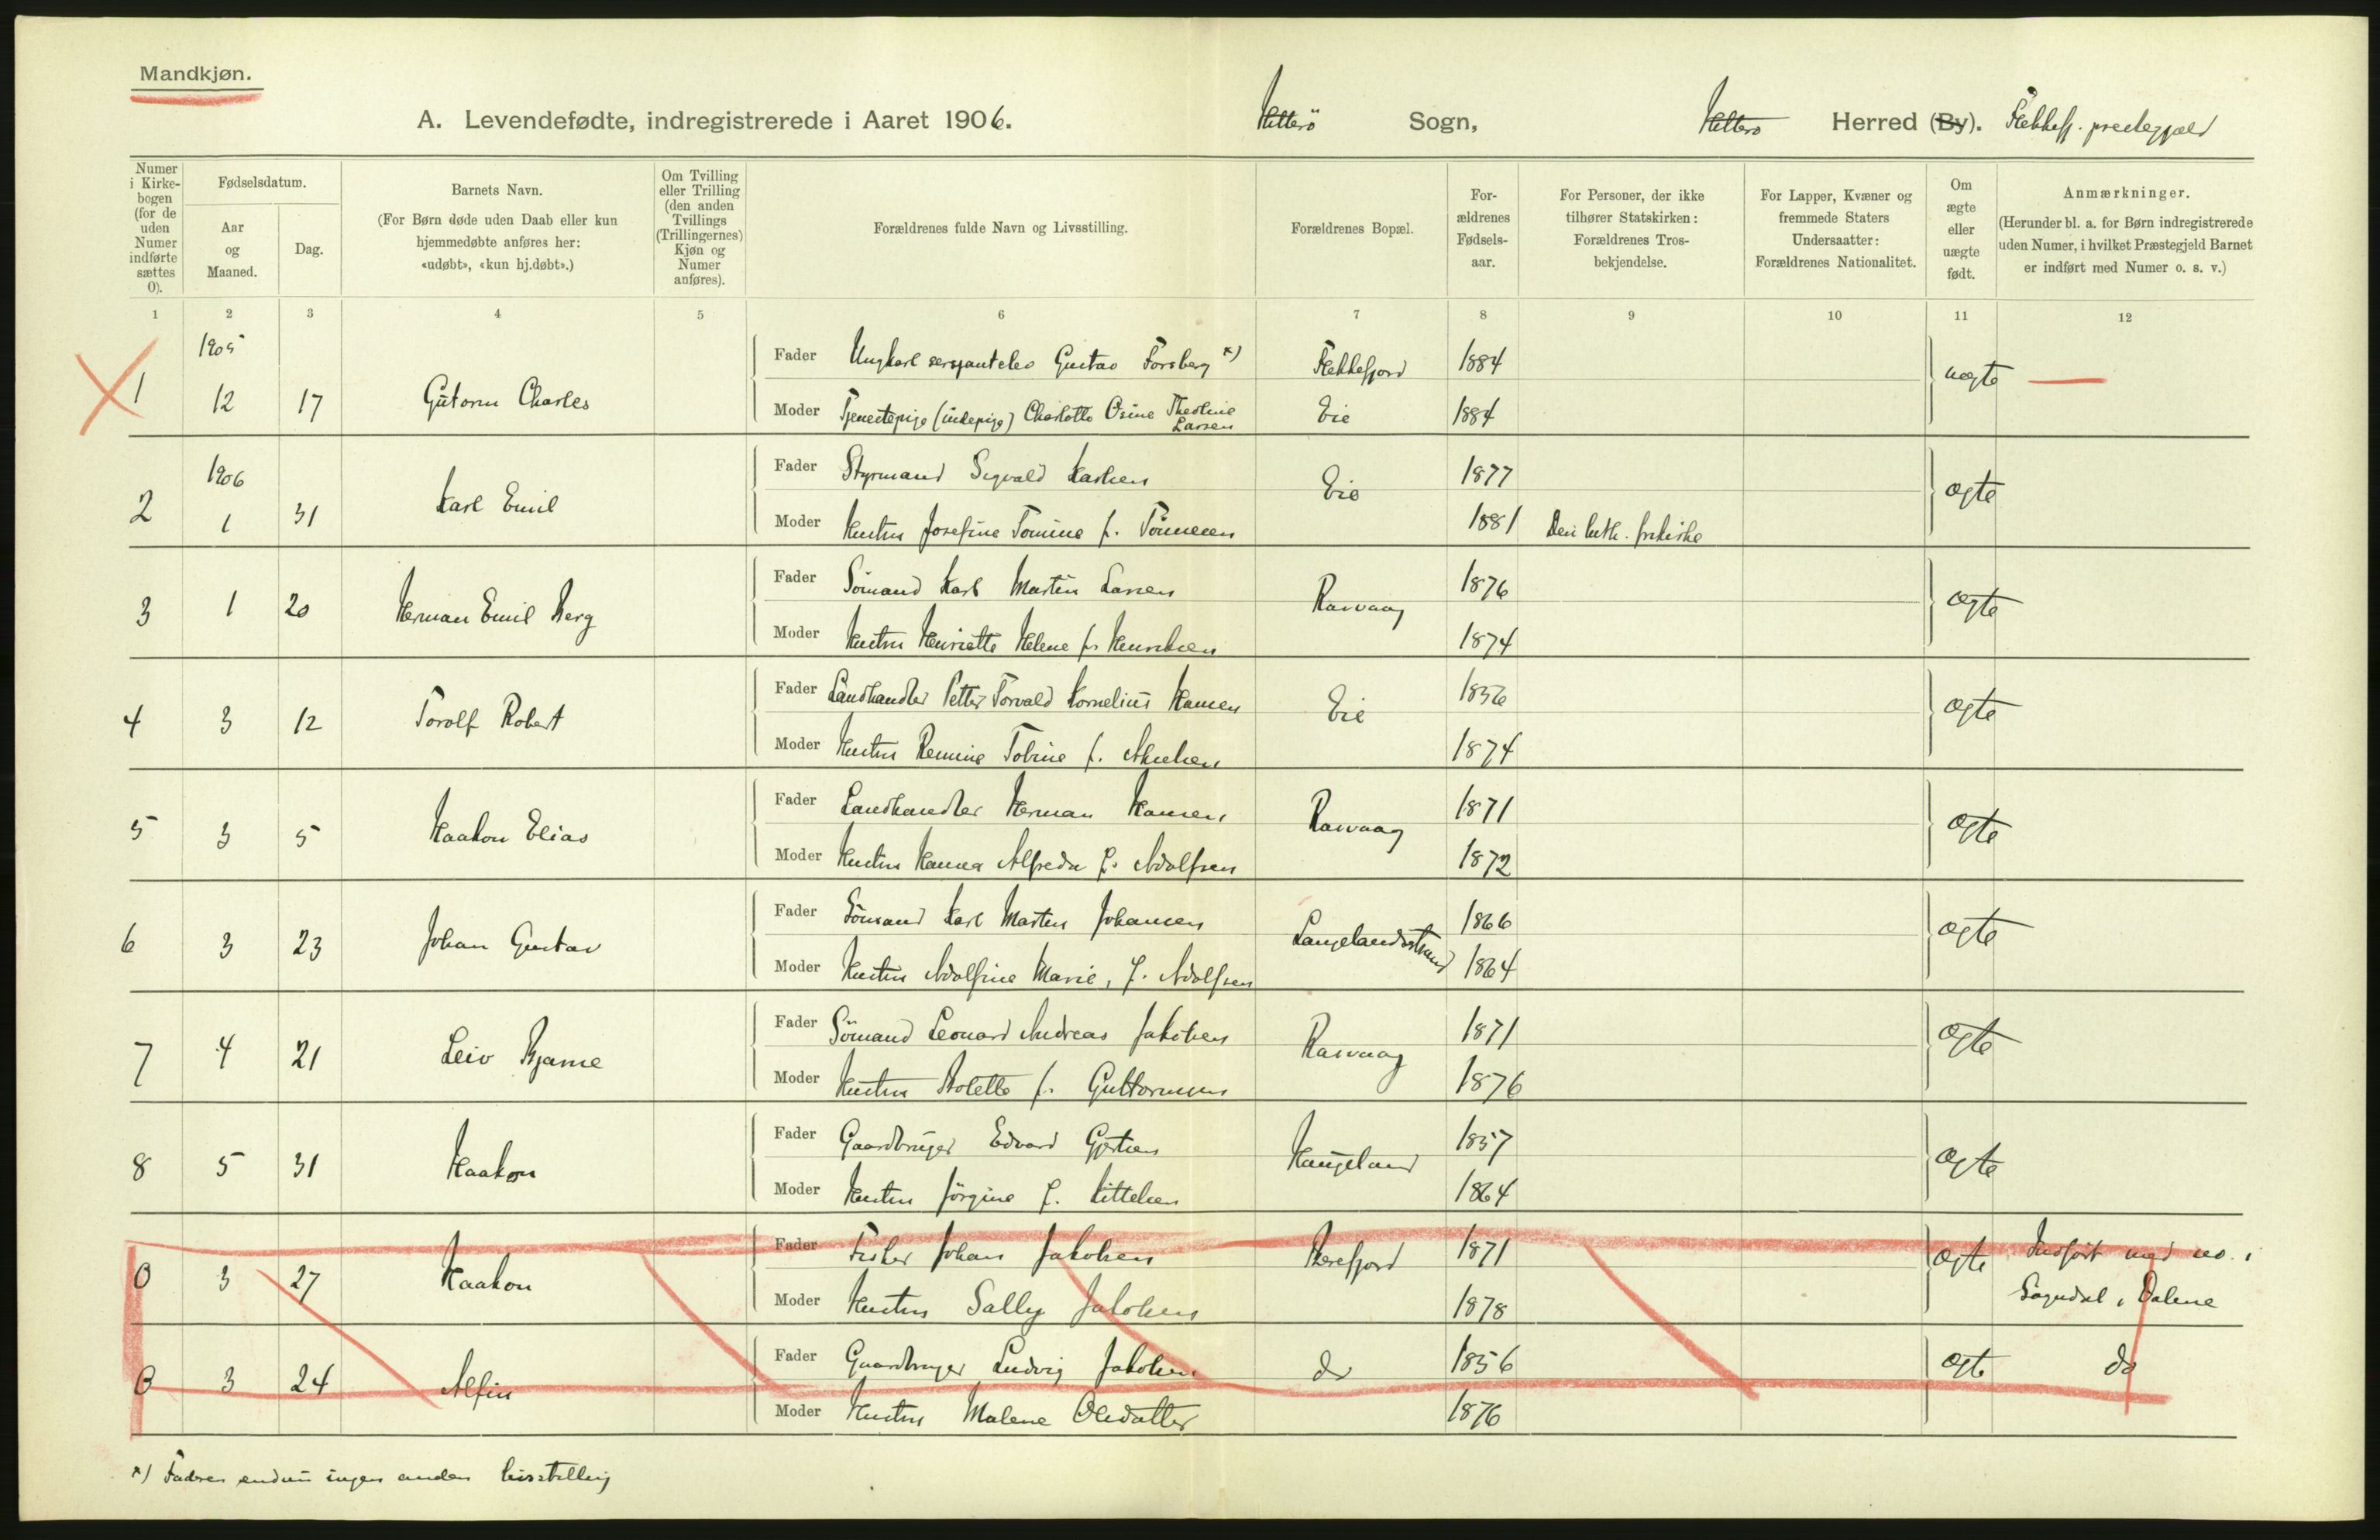 Mandkjøn.
A. Levendefødte, indregistrerede i Aaret 1906. Hitterö Sogn, Hitterö Herred (By). Flekkefj. prestegjæld
Numer i Kirkebogen (for de uden Numer indførte sættes 0).
Fødselsdatum.
Aar og Maaned.
Dag.
Barnets Navn.
(For Børn døde uden Daab eller kun hjemmedøbte anføres her: «udøbt», «kun hj.døbt».)
Om Tvilling eller Trilling (den anden Tvillings (Trillingernes) Kjøn og Numer anføres).
Forældrenes fulde Navn og Livsstilling.
Forældrenes Bopæl.
Forældrenes Fødselsaar.
For Personer, der ikke tilhører Statskirken: Forældrenes Trosbekjendelse.
For Lapper, Kvæner og fremmede Staters Undersaatter: Forældrenes Nationalitet.
Om ægte eller uægte født.
Anmærkninger.
(Herunder bl. a. for Børn indregistrerede uden Numer, i hvilket Præstegjeld Barnet er indført med Numer o. s. v.)
1 2 3 4 5 6 7 8 9 10 11 12
1 1905 12 17 Gutorm Charles uægte
Fader Ungkarl sersjantelev Gustav Forsberg x) Flekkefjord 1884
Moder Tjenestepige (indepige) Charlotte Osine Theoline Larsen Eie 1884
2 1906 1 31 Karl Emil Eie ægte
Fader Styrmand Sigvald Karlsen 1877
Moder Hustru Josefine Tomine f. Tönnesen 1881 Den luth. frikirke
3 1 20 Herman Emil Berg Rasvaag ægte
Fader Sömand Karl Martin Larsen 1876
Moder Hustru Henriette Helene f. Henriksen 1874
4 3 12 Torolf Robert Eie ægte
Fader Landhandler Petter Torvald Kornelius Hansen 1856
Moder Hustru Tobine f. 1874
5 3 5 Haakon Elias Rasvaag ægte
Fader Landhandler Herman Hansen 1871
Moder Hustru Hanna Alfreda f. Adolfsen 1872
6 3 23 Johan Gustav Langelandsstrand ægte
Fader Sömand Karl Martin Johansen 1866
Moder Hustru Adolfine Marie, f. Adolfsen 1864
7 4 21 Leiv Bjarne Rasvaag ægte
Fader Sömand Leonard Andreas Jakobsen 1871
Moder Hustru f. Guttormsen 1876
8 5 31 Haakon Haugeland ægte
Fader Gaardbruger Edvard Gjertsen 1857
Moder Hustru Jörgine f. Kittelsen 1864
0 3 27 Haakon ægte Indfört med no. i Sogndal i Dalene
Fader Fisker Johan Jakobsen 1871
Moder Hustru Sally Jakobsen 1878
0 3 24 Alfin do ægte do
Fader Gaardbruger Ludvig Jakobsen 1856
Moder Hustru Malene Olsdatter 1876
x) Faderen endnu ingen anden livsstilling